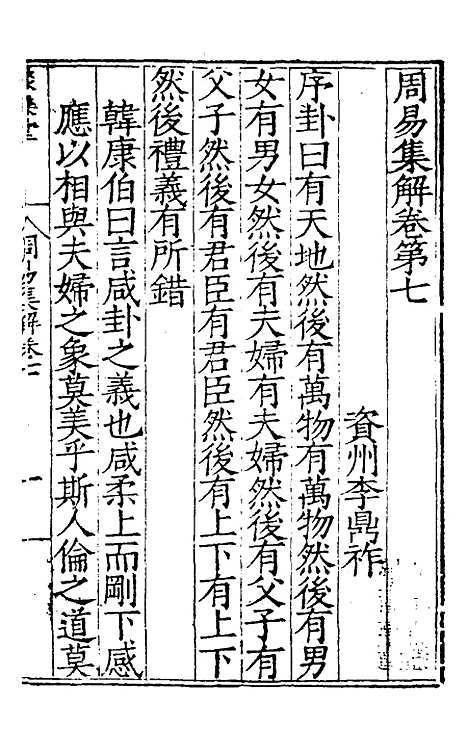 周易集解卷第七
資州李鼎祚
序卦曰有天地然後有萬物有萬物然後有男
女有男女然後有夫婦有夫婦然後有父子有
父子然後有君臣有君臣然後有上下有上下
然後禮義有所錯
韓康伯曰言咸卦之義也咸柔上而剛下感
應以相與夫婦之象莫美乎斯人倫之道莫
周易集解卷七
一